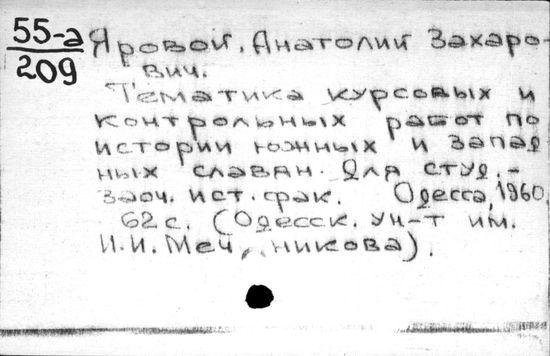 55-а
209
Яровой, Анатолий Захаро-
вич.
Тематика курсовых и
контрольных работ по
истории южных и запад
ных славян. Для студ.-
заоч. ист. фак. Одесса, 1960
62 с. (Одесск. ун-т им.
И. И. Мечникова).